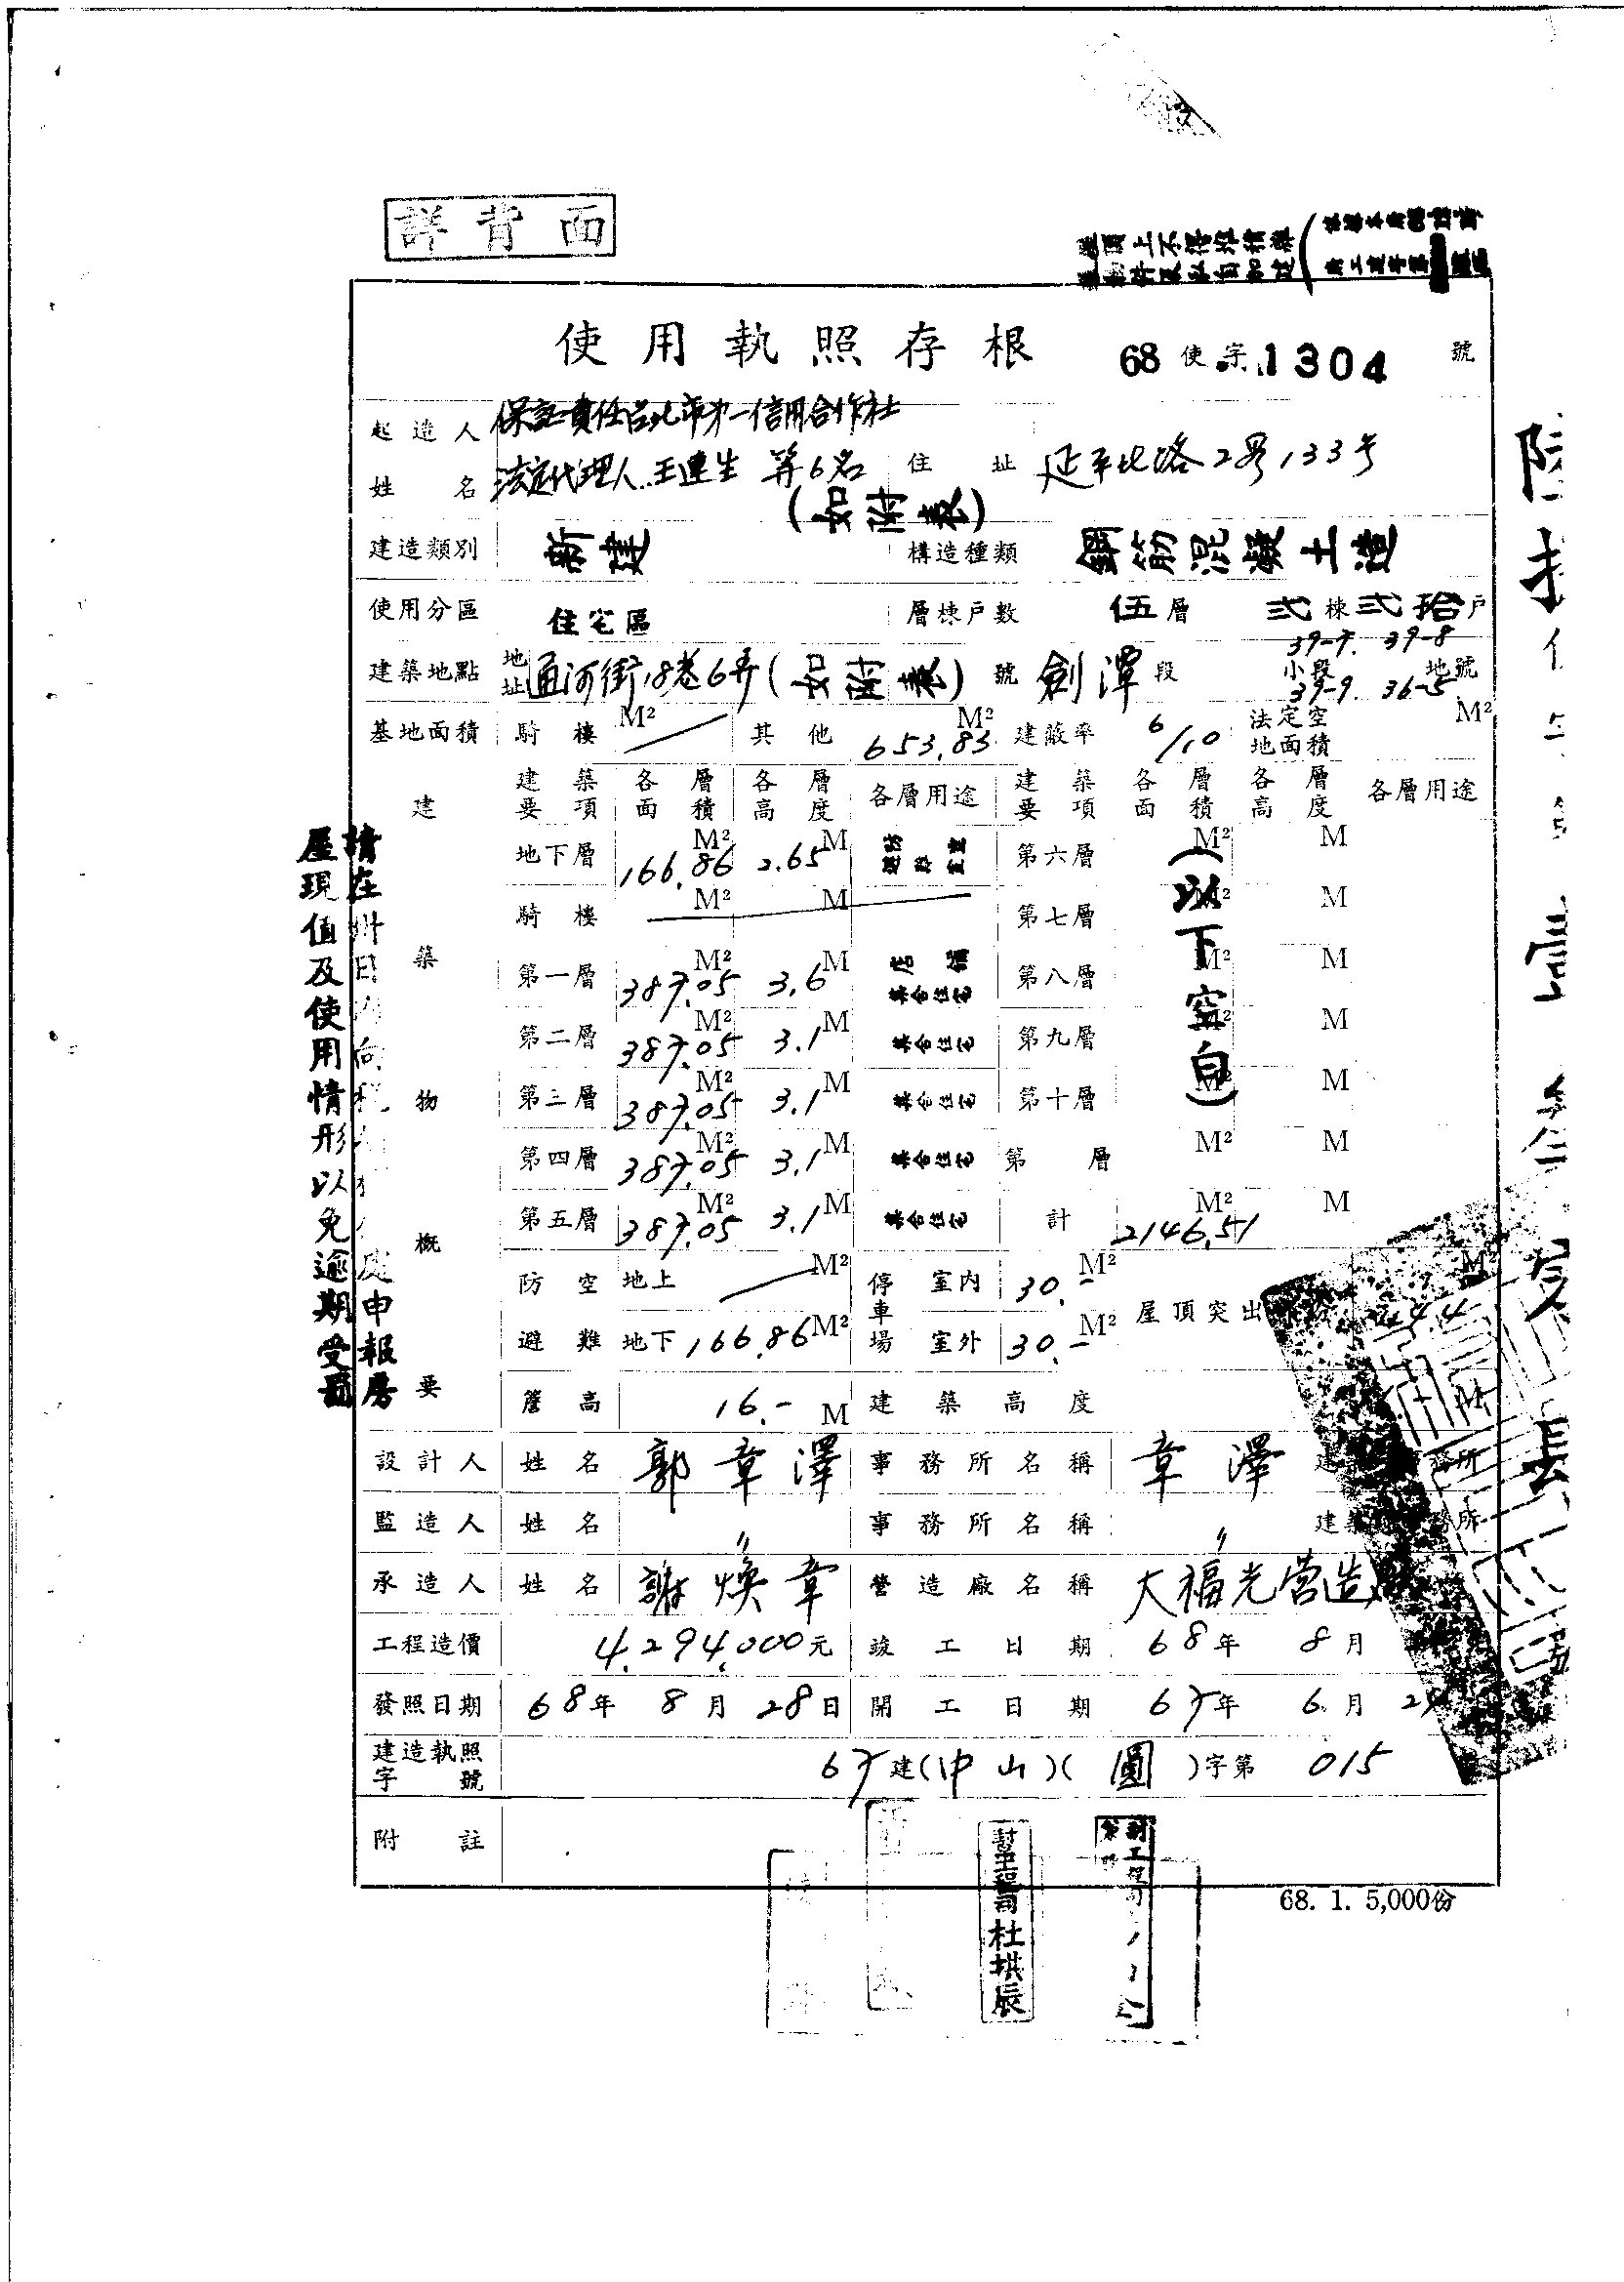 詳背面
使用執照存根 68使字1304號
起造人姓名 保証責任台北市第一信用合作社
法定代理人王連生 等6名(如附表) 住址 延平北路2男133号
建造類別 新建 構造種類 鋼筋混凝土造
使用分區 住宅區 層棟戶數 伍層 弍棟弍拾戶
建築地點 地址 通河街18巷6弄(如附表)號 劍潭段 小段 39-7. 39-8 39-9. 36-5 地號
基地面積 騎樓 M² 其他 653.83 M² 建蔽率 6/10 法定空地面積 M²
建築概要 建築要項 各層面積 各層高度 各層用途 建築要項 各層面積 各層高度 各層用途
地下層 166.86 M² 2.65 M 第六層 M² M
騎樓 M² M 第七層 M² M
第一層 387.05 M² 3.6 M 店舖 集合住宅 第八層 M² M
第二層 387.05 M² 3.1 M 集合住宅 第九層 M² M
第三層 387.05 M² 3.1 M 集合住宅 第十層 M² M
第四層 387.05 M² 3.1 M 集合住宅 第 層 M² M
第五層 387.05 M² 3.1 M 集合住宅 計 2146.51 M² M
(以下空白)
防空避難 地上 M² 停車場 室內 30.- M² 屋頂突出
地下 166.86 M² 室外 30.- M²
簷高 16.- M 建築高度 M
設計人 姓名 郭章澤 事務所名稱 章澤
監造人 姓名 〃 事務所名稱 〃
承造人 姓名 謝煥章 營造廠名稱 大福光营造
工程造價 4.294.000元 竣工日期 68年 8月
發照日期 68年 8月 28日 開工日期 67年 6月
建造執照字號 67建(中山)(圓)字第 015
附註
68. 1. 5,000份
屋現值及使用情形以免逾期受罰
杜拱辰